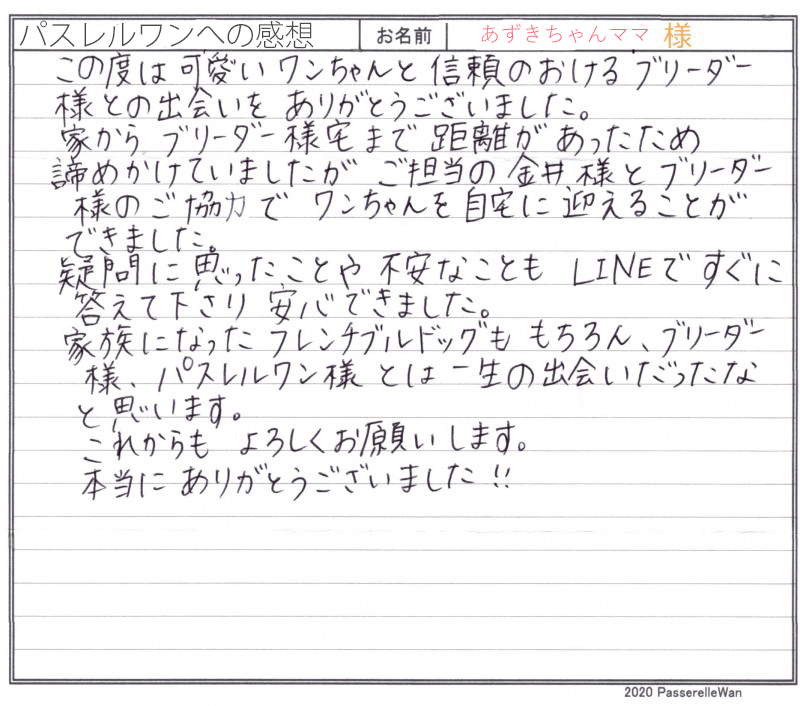 パスレルワンへの感想 お名前 あずきちゃんママ 様
この度は可愛いワンちゃんと信頼のおけるブリーダー
様との出会いをありがとうございました。
家からブリーダー様宅まで距離があったため
諦めかけていましたがご担当の金井様とブリーダー
様のご協力でワンちゃんを自宅に迎えることが
できました。
疑問に思ったことや不安なことも LINEですぐに
答えて下さり安心できました。
家族になったフレンチブルドッグももちろん、ブリーダー
様、パスレルワン様とは一生の出会いだったな
と思います。
これからもよろしくお願いします。
本当にありがとうございました!!
2020 PasserelleWan